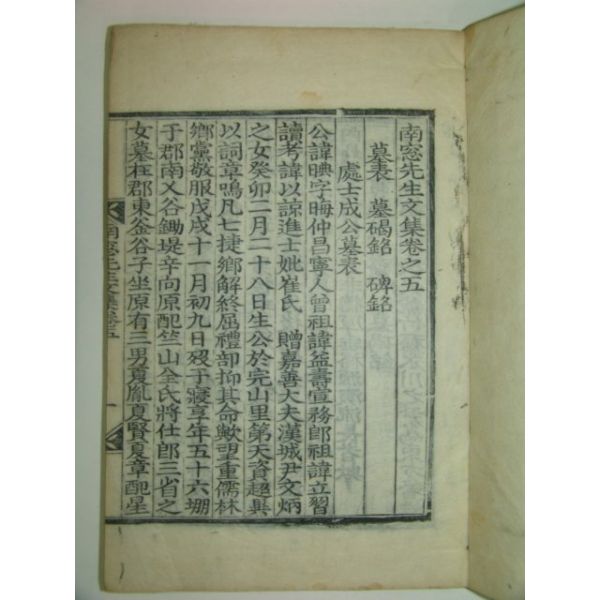 南窓先生文集卷之五
墓表 墓碣銘 碑銘
處士成公墓表
公諱晪字晦仲昌寧人曾祖諱益壽宣務郎祖諱立習
讀考諱以諒進士妣崔氏 贈嘉善大夫漢城尹文炳
之女癸卯二月二十八日生公於完山里第天資超異
以詞章鳴凡七捷鄕解終屈禮部抑其命歟望重儒林
鄕黨敬服戊戌十一月初九日歿于寢享年五十六堋
于郡南乂谷鋤堤辛向原配竺山全氏將仕郎三省之
女墓在郡東釜谷子坐原有三男夏胤夏賢夏章配星
南窓先生文集卷五
一